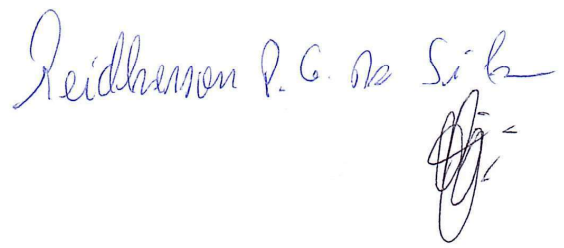 Reidherson P. G. da Silva